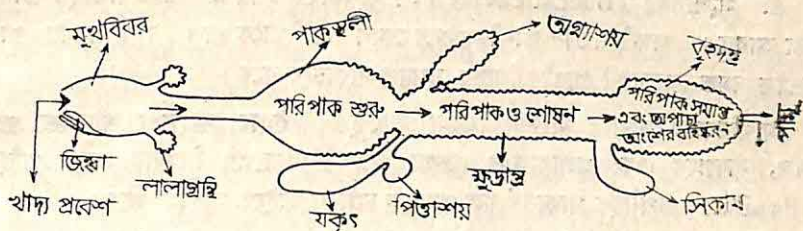 মুখবিবর
পাকস্থলী
অগ্ন্যাশয়
বৃহদন্ত্র
পরিপাক শুরু
পরিপাক ও শোষন
পরিপাক সমাপ্ত
এবং অপাচ্য
অংশের বহিষ্করণ
পায়ু
জিহ্বা
লালাগ্রন্থি
খাদ্য প্রবেশ
যকৃৎ
পিত্তাশয়
ক্ষুদ্রান্ত্র
সিকাম